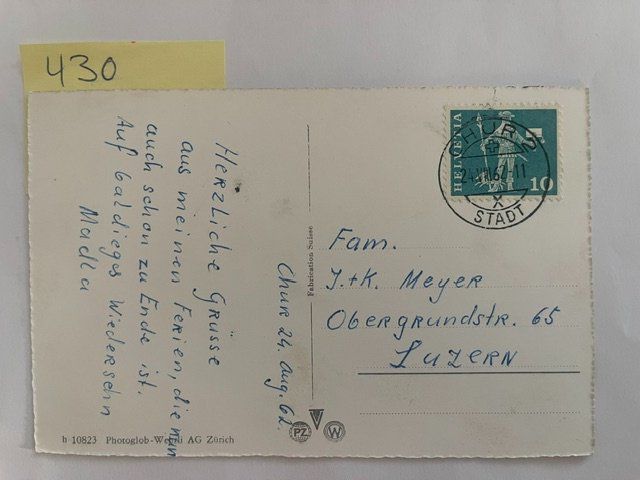 430
Chur 24. Aug. 62.
Herzliche Grüsse
aus meinen Ferien, die nun
auch schon zu Ende ist.
Auf baldieges Wiedersehn
Madla
Fabrication Suisse
HELVETIA
10
CHUR 2
62-11
X
STADT
Fam.
J.+K. Meyer
Obergrundstr. 65
Luzern
PZ
W
b 10823 Photoglob-Wehrli AG Zürich